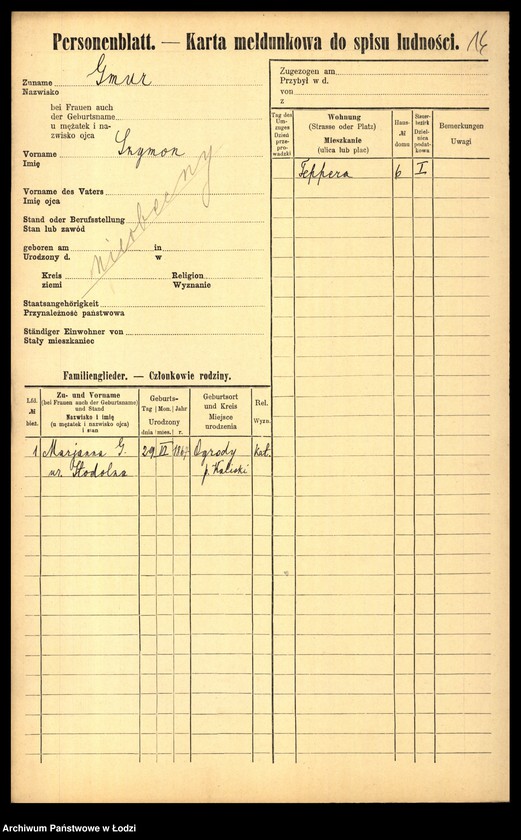 Personenblatt. — Karta meldunkowa do spisu ludności. 14
Zuname Gmur
Nazwisko
bei Frauen auch
der Geburtsname
u mężatek i na-
zwisko ojca
Vorname Szymon
Imię
Vorname des Vaters
Imię ojca
Stand oder Berufsstellung
Stan lub zawód
nieobecny
geboren am in
Urodzony d. w
Kreis Religion
ziemi Wyznanie
Staatsangehörigkeit
Przynależność państwowa
Ständiger Einwohner von
Stały mieszkaniec
Familienglieder. — Członkowie rodziny.
Lfd. № bież.
Zu- und Vorname
(bei Frauen auch der Geburtsname)
und Stand
Nazwisko i imię
(u mężatek i nazwisko ojca)
i stan
Geburts-
Tag Mon. Jahr
Urodzony
dnia mies. r.
Geburtsort
und Kreis
Miejsce
urodzenia
Rel.
Wyzn.
1 Marjanna G. 29 VI 1867 Ogrody kat.
ur. Stodolna p. Kaliski
Zugezogen am
Przybył w d.
von
z
Tag des
Um-
zuges
Dzień
prze-
prowadzki
Wohnung
(Strasse oder Platz)
Mieszkanie
(ulica lub plac)
Haus-
№
domu
Steuer-
bezirk
Dziel-
nica
podat-
kowa
Bemerkungen
Uwagi
Teppera 6 I
Archiwum Państwowe w Łodzi